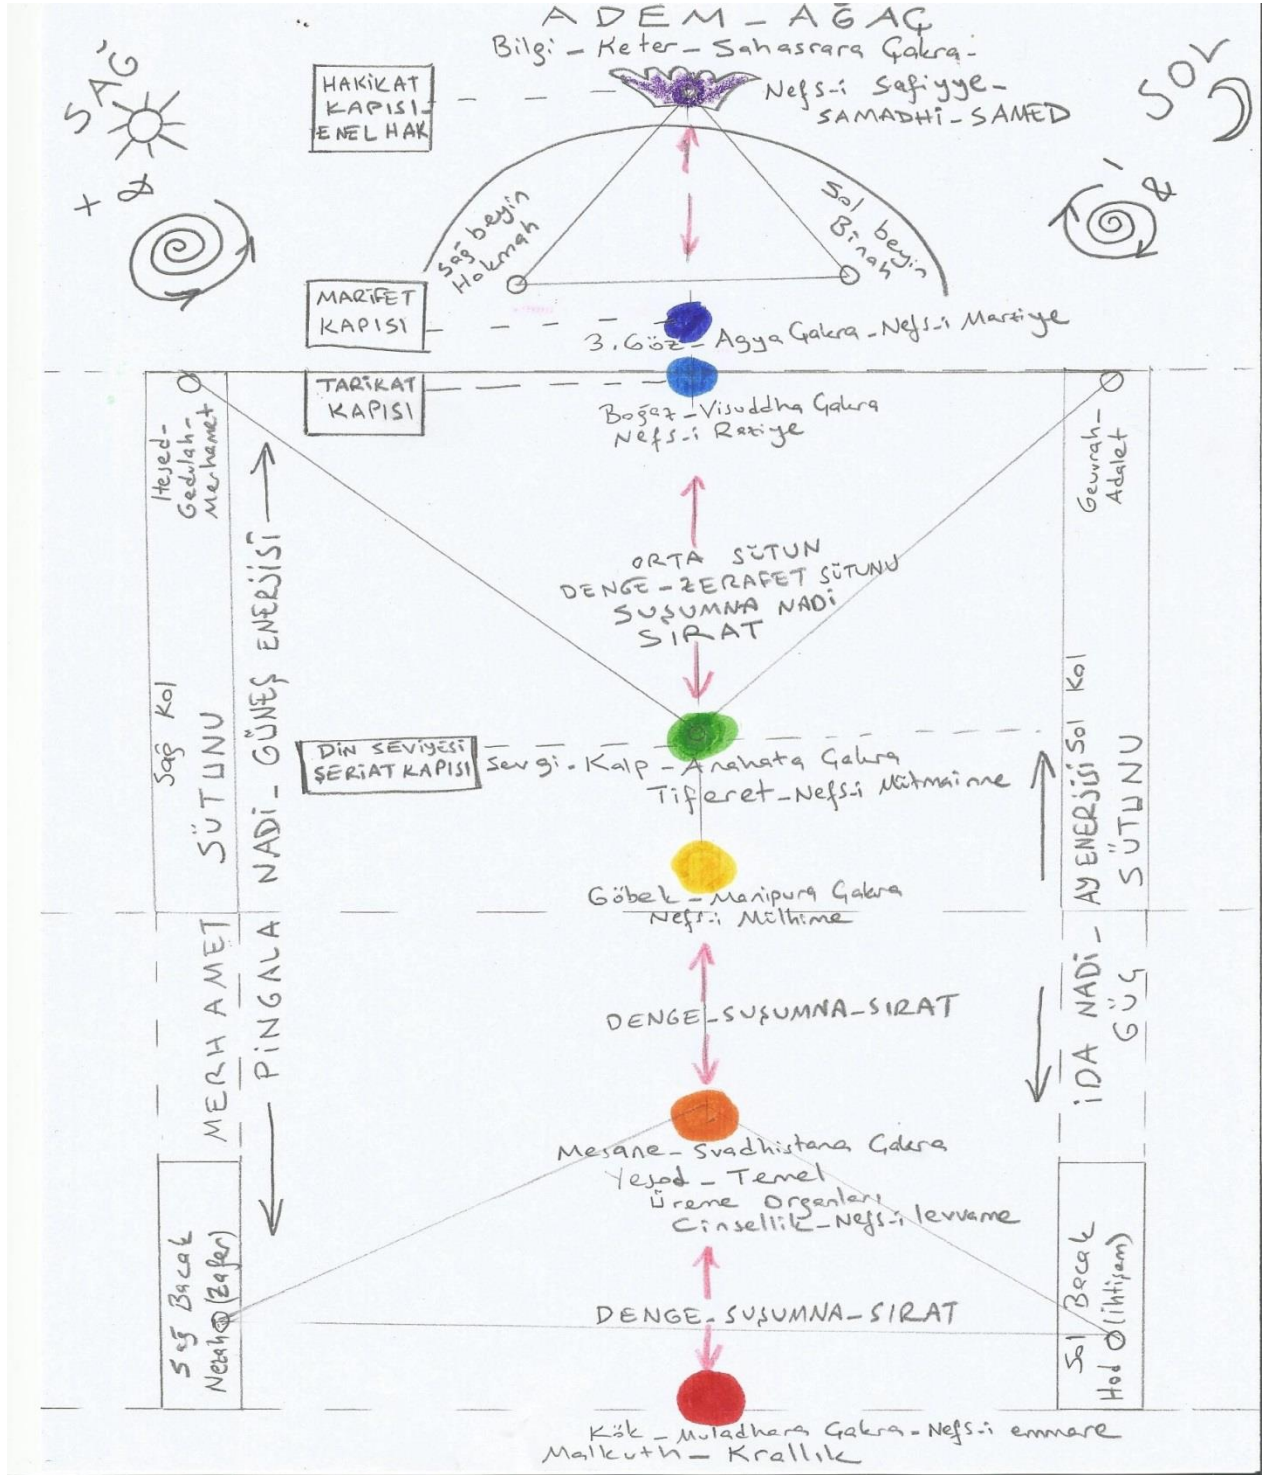 ADEM - AĞAÇ
Bilgi - Keter - Sahasrara Çakra -
Nefs-i Safiyye -
SAMADHİ - SAMED
HAKİKAT
KAPISI -
ENEL HAK
SAĞ
SOL
+
-
&
Sağ beyin
Hokmah
Sol beyin
Binah
MARİFET
KAPISI
3. Göz - Agya Çakra - Nefs-i Marziye
TARİKAT
KAPISI
Boğaz - Visuddha Çakra
Nefs-i Raziye
Hesed -
Gedulah -
Merhamet
Gevurah -
Adalet
ORTA SÜTUN
DENGE - ZERAFET SÜTUNU
SUŞUMNA NADİ
SIRAT
Sağ Kol
MERHAMET SÜTUNU
PİNGALA NADİ - GÜNEŞ ENERJİSİ
Sol Kol
İDA NADİ - AY ENERJİSİ
GÜÇ SÜTUNU
DİN SEVİYESİ
ŞERİAT KAPISI
Sevgi - Kalp - Anahata Çakra
Tiferet - Nefs-i Mütmainne
Göbek - Manipura Çakra
Nefs-i Mülhime
DENGE - SUŞUMNA - SIRAT
Mesane - Svadhistana Çakra
Yesod - Temel
Üreme Organları
Cinsellik - Nefs-i levvame
DENGE - SUŞUMNA - SIRAT
Sağ Bacak
Nezah (Zafer)
Sol Bacak
Hod (İhtişam)
Kök - Muladhara Çakra - Nefs-i emmare
Malkuth - Krallık